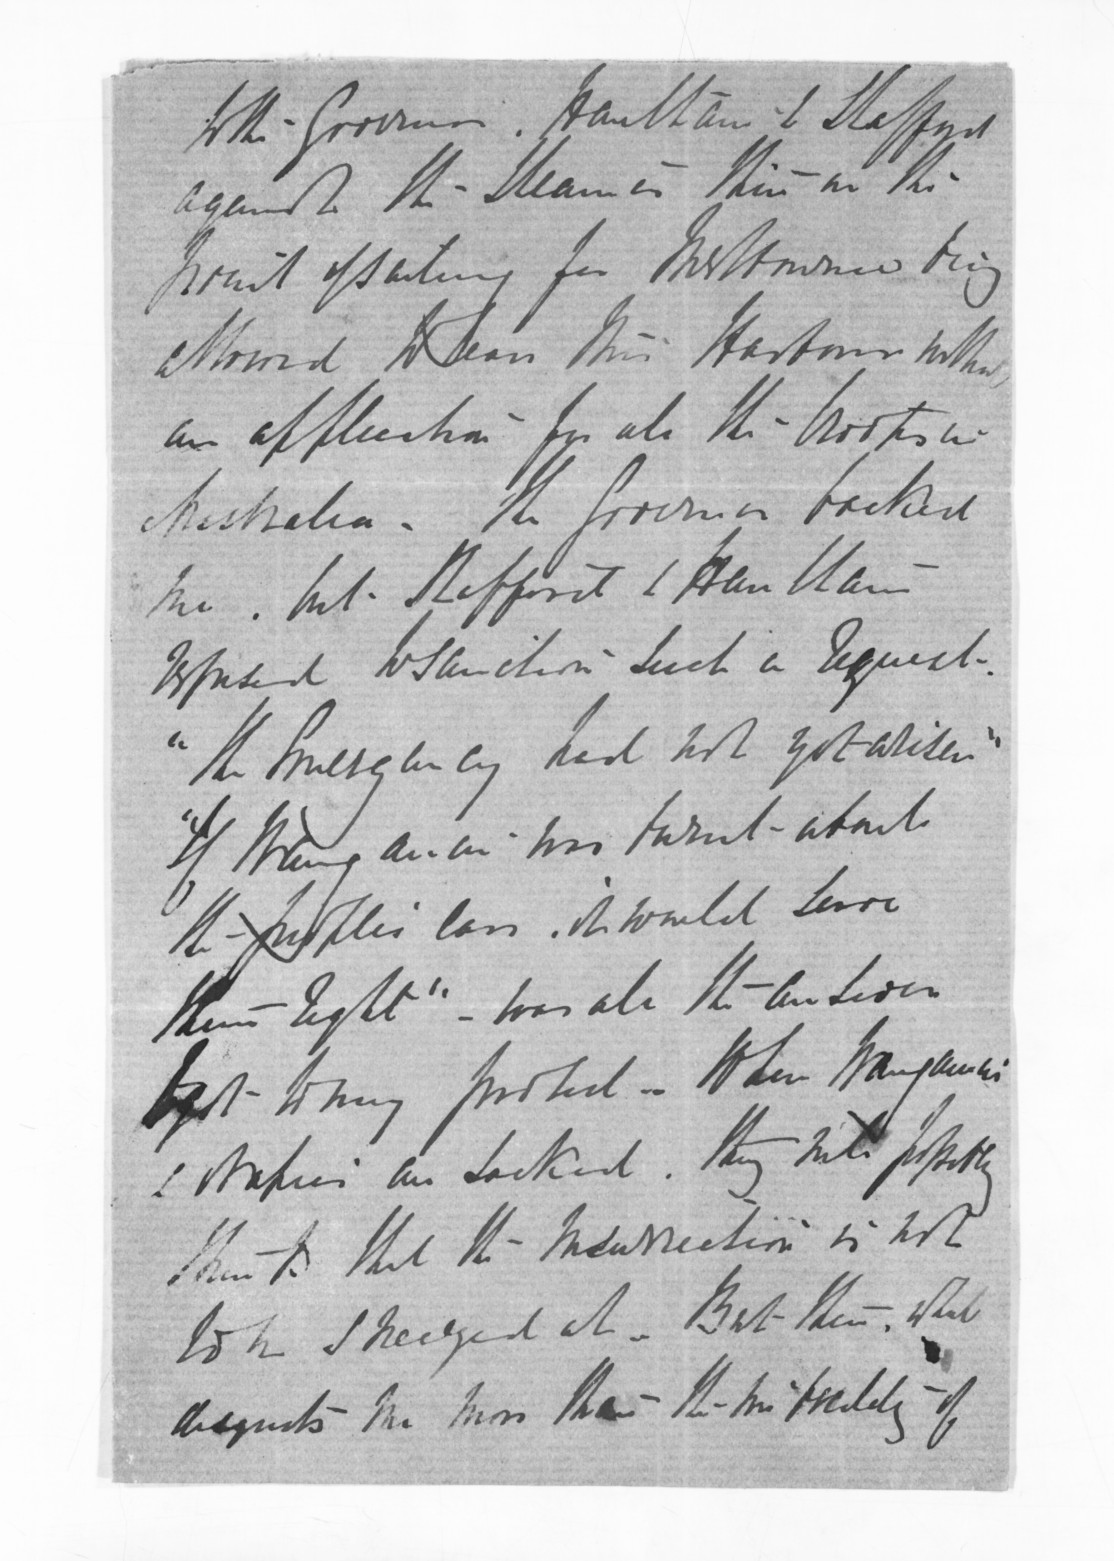 to the Governor. Haultain & Stafford
against the Steamer then on the
point of sailing for Melbourne being
allowed to leave this Harbour without
an application for all the troops in
Australia - The Governor backed
me. but Stafford & Haultain
refused to sanction such a request.
"The Emergency had not yet arisen"
"If Wanganui was burnt about
the people's ears. it would serve
them right" - was all the answer
I got to my protest - When Wanganui
& Napier are sacked. they will possibly
think that the Insurrection is not
to be sneezed at - But then, what
disgusts me more than the imbecility of